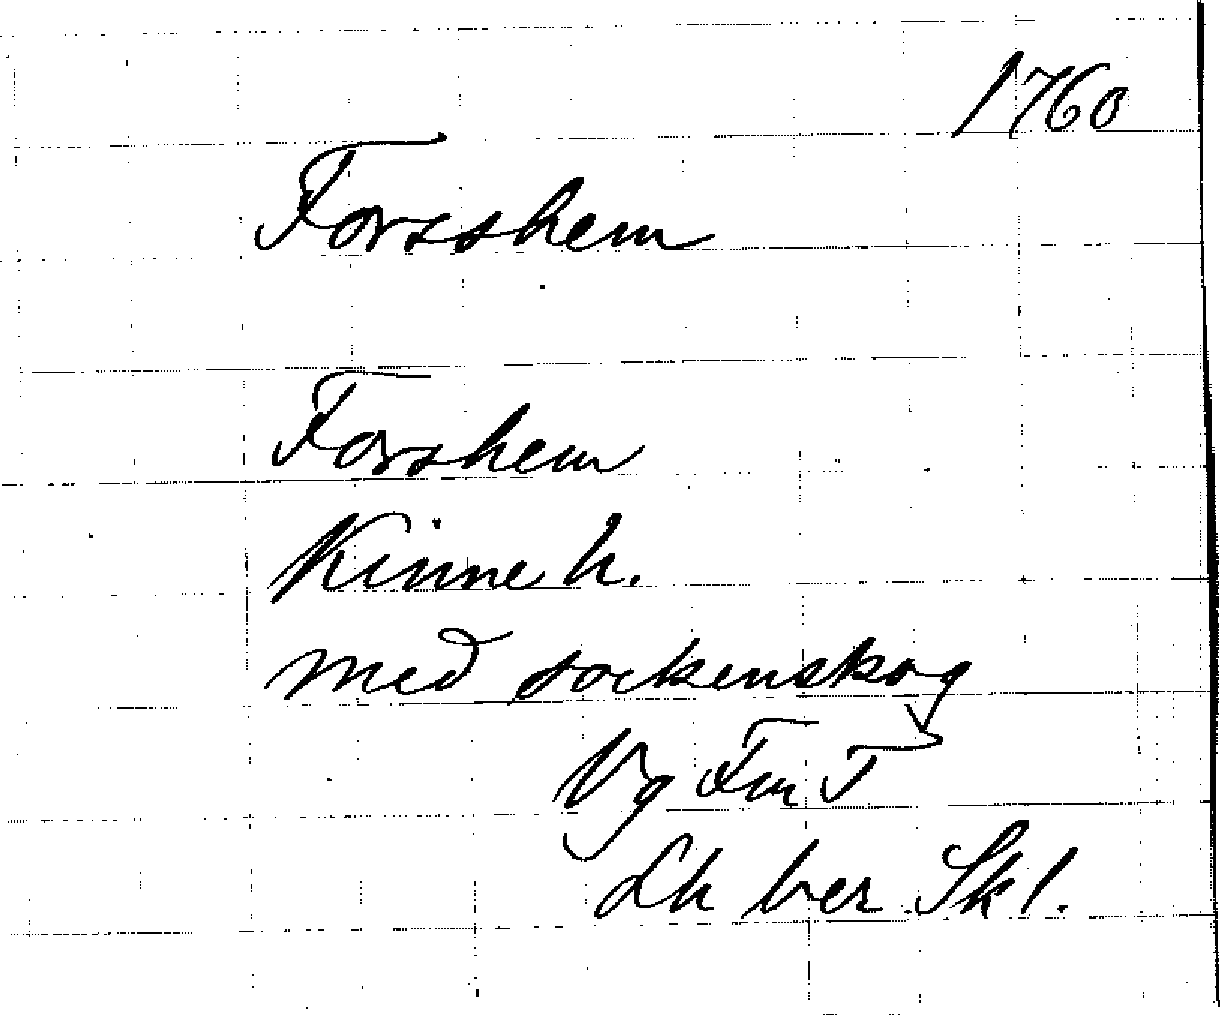 1760
Forsshem
Forshem
Kinne h.
med sockenskog
Vg Fm T
Lh ber Skl.